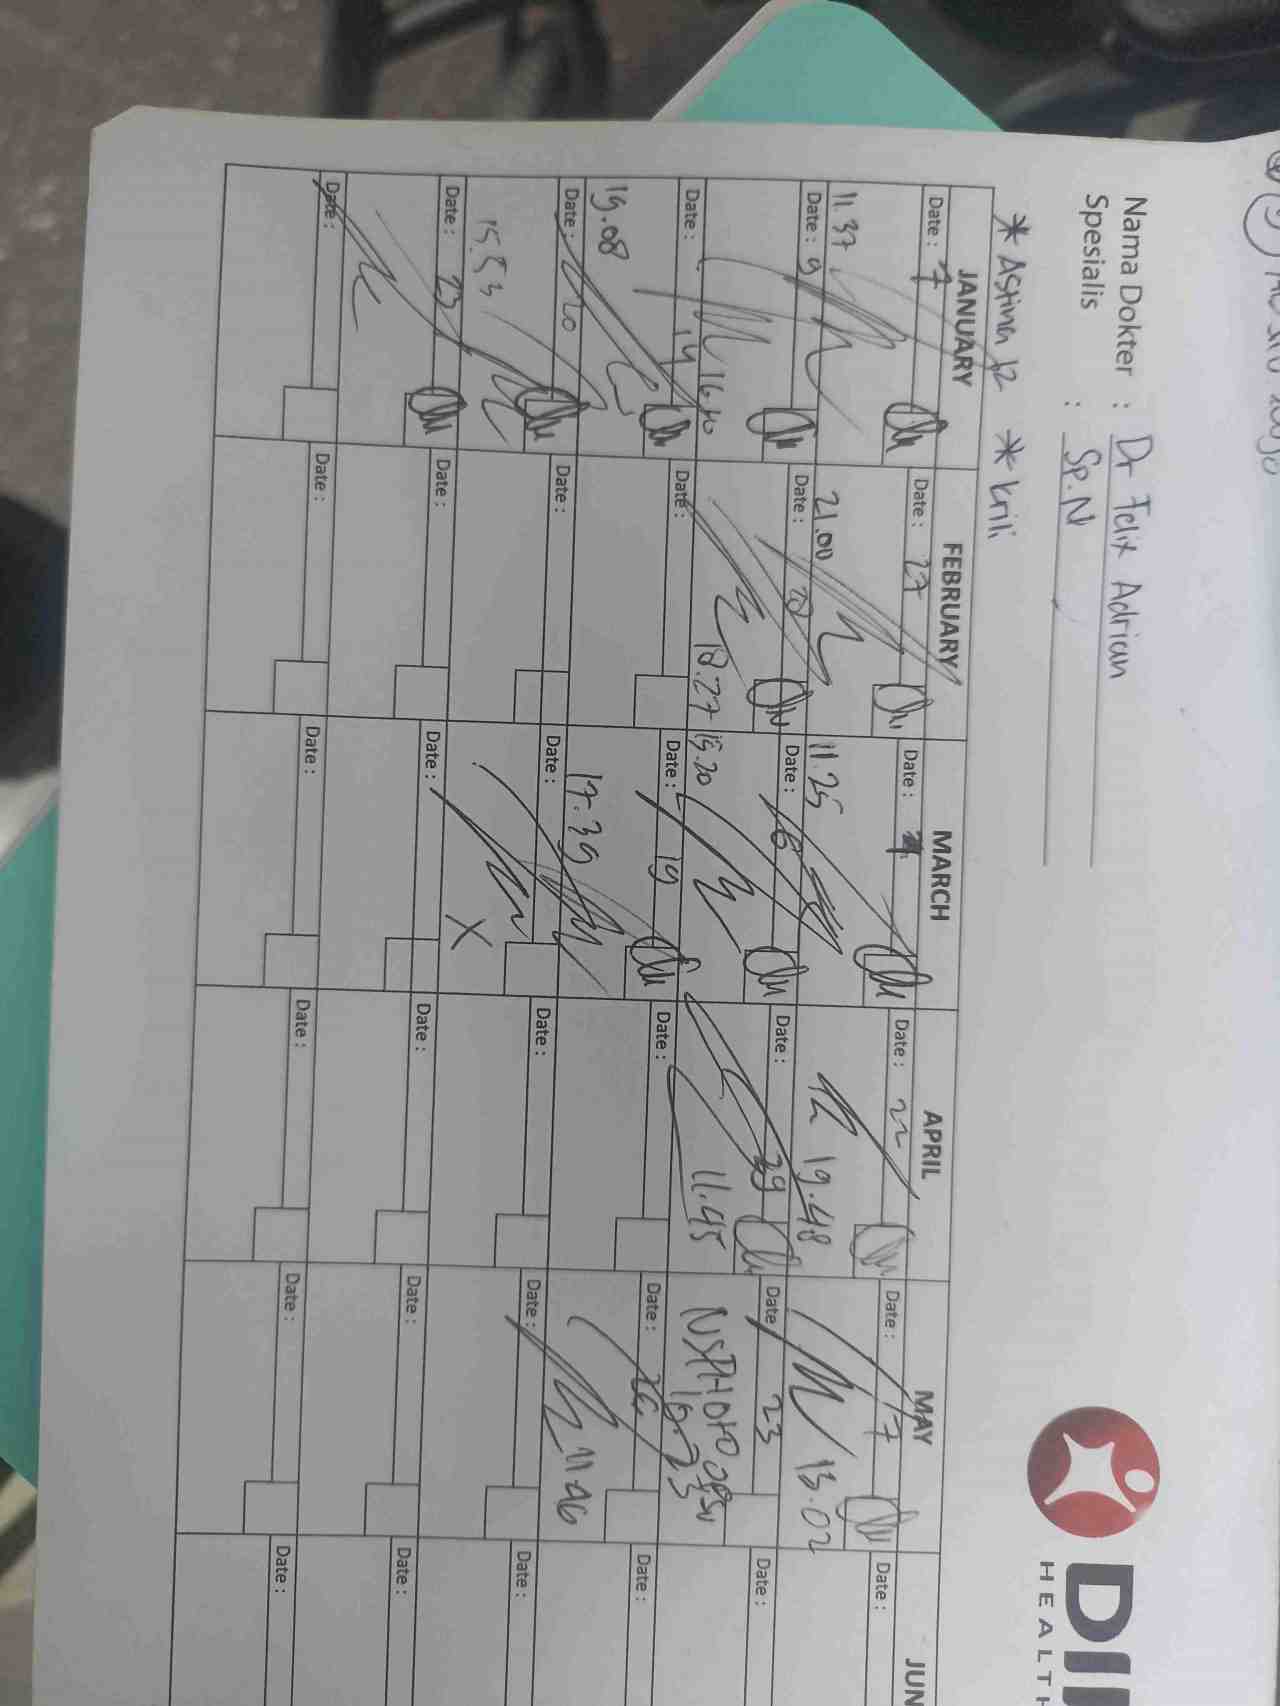 Nama Dokter : Dr Felix Adrian
Spesialis : Sp.N
DI
HEALTH
* Astina 12 * Krili
JANUARY FEBRUARY MARCH APRIL MAY JUN
Date : 7 Date : 27 Date : Date : 22 Date : 7 Date :
11.37 21.00 11.25 19.48 13.02
Date : 9 Date : Date : 6 Date : 29 Date 23 Date :
16.40 18.27 19.20 11.45
Date : 14 Date : Date : 19 Date : Date : 26 Date :
19.08 17.39 11.46
Date : 20 Date : Date : Date : Date : Date :
15.53 X
Date : 23 Date : Date : Date : Date : Date :
Date : Date : Date : Date : Date : Date :